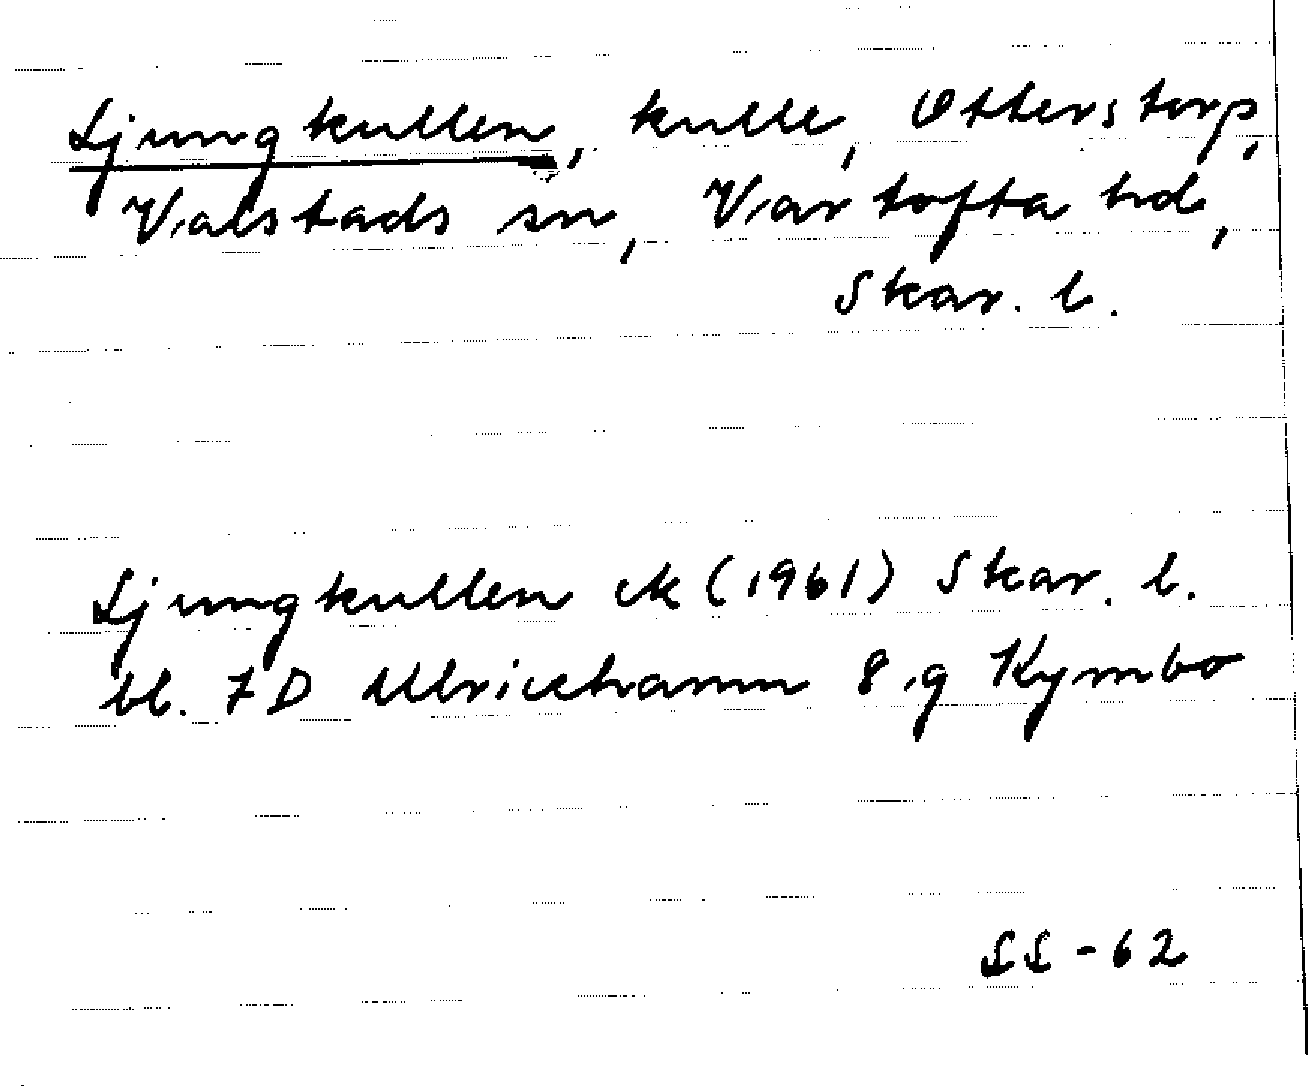 Ljungkullen, kulle, Otterstorp,
Valstads sn, Vartofta hd,
Skar. l.
Ljungkullen ek (1961) Skar. l.
bl. 7D Ulricehamn 8 g Kymbo
LL-62